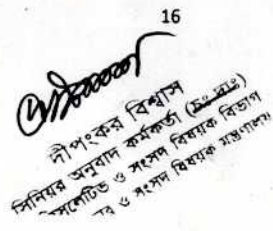 16
দীপংকর বিশ্বাস
সিনিয়র অনুবাদ কর্মকর্তা (চঃ দাঃ)
ও সংসদ বিষয়ক বিভাগ
ও সংসদ বিষয়ক মন্ত্রণালয়